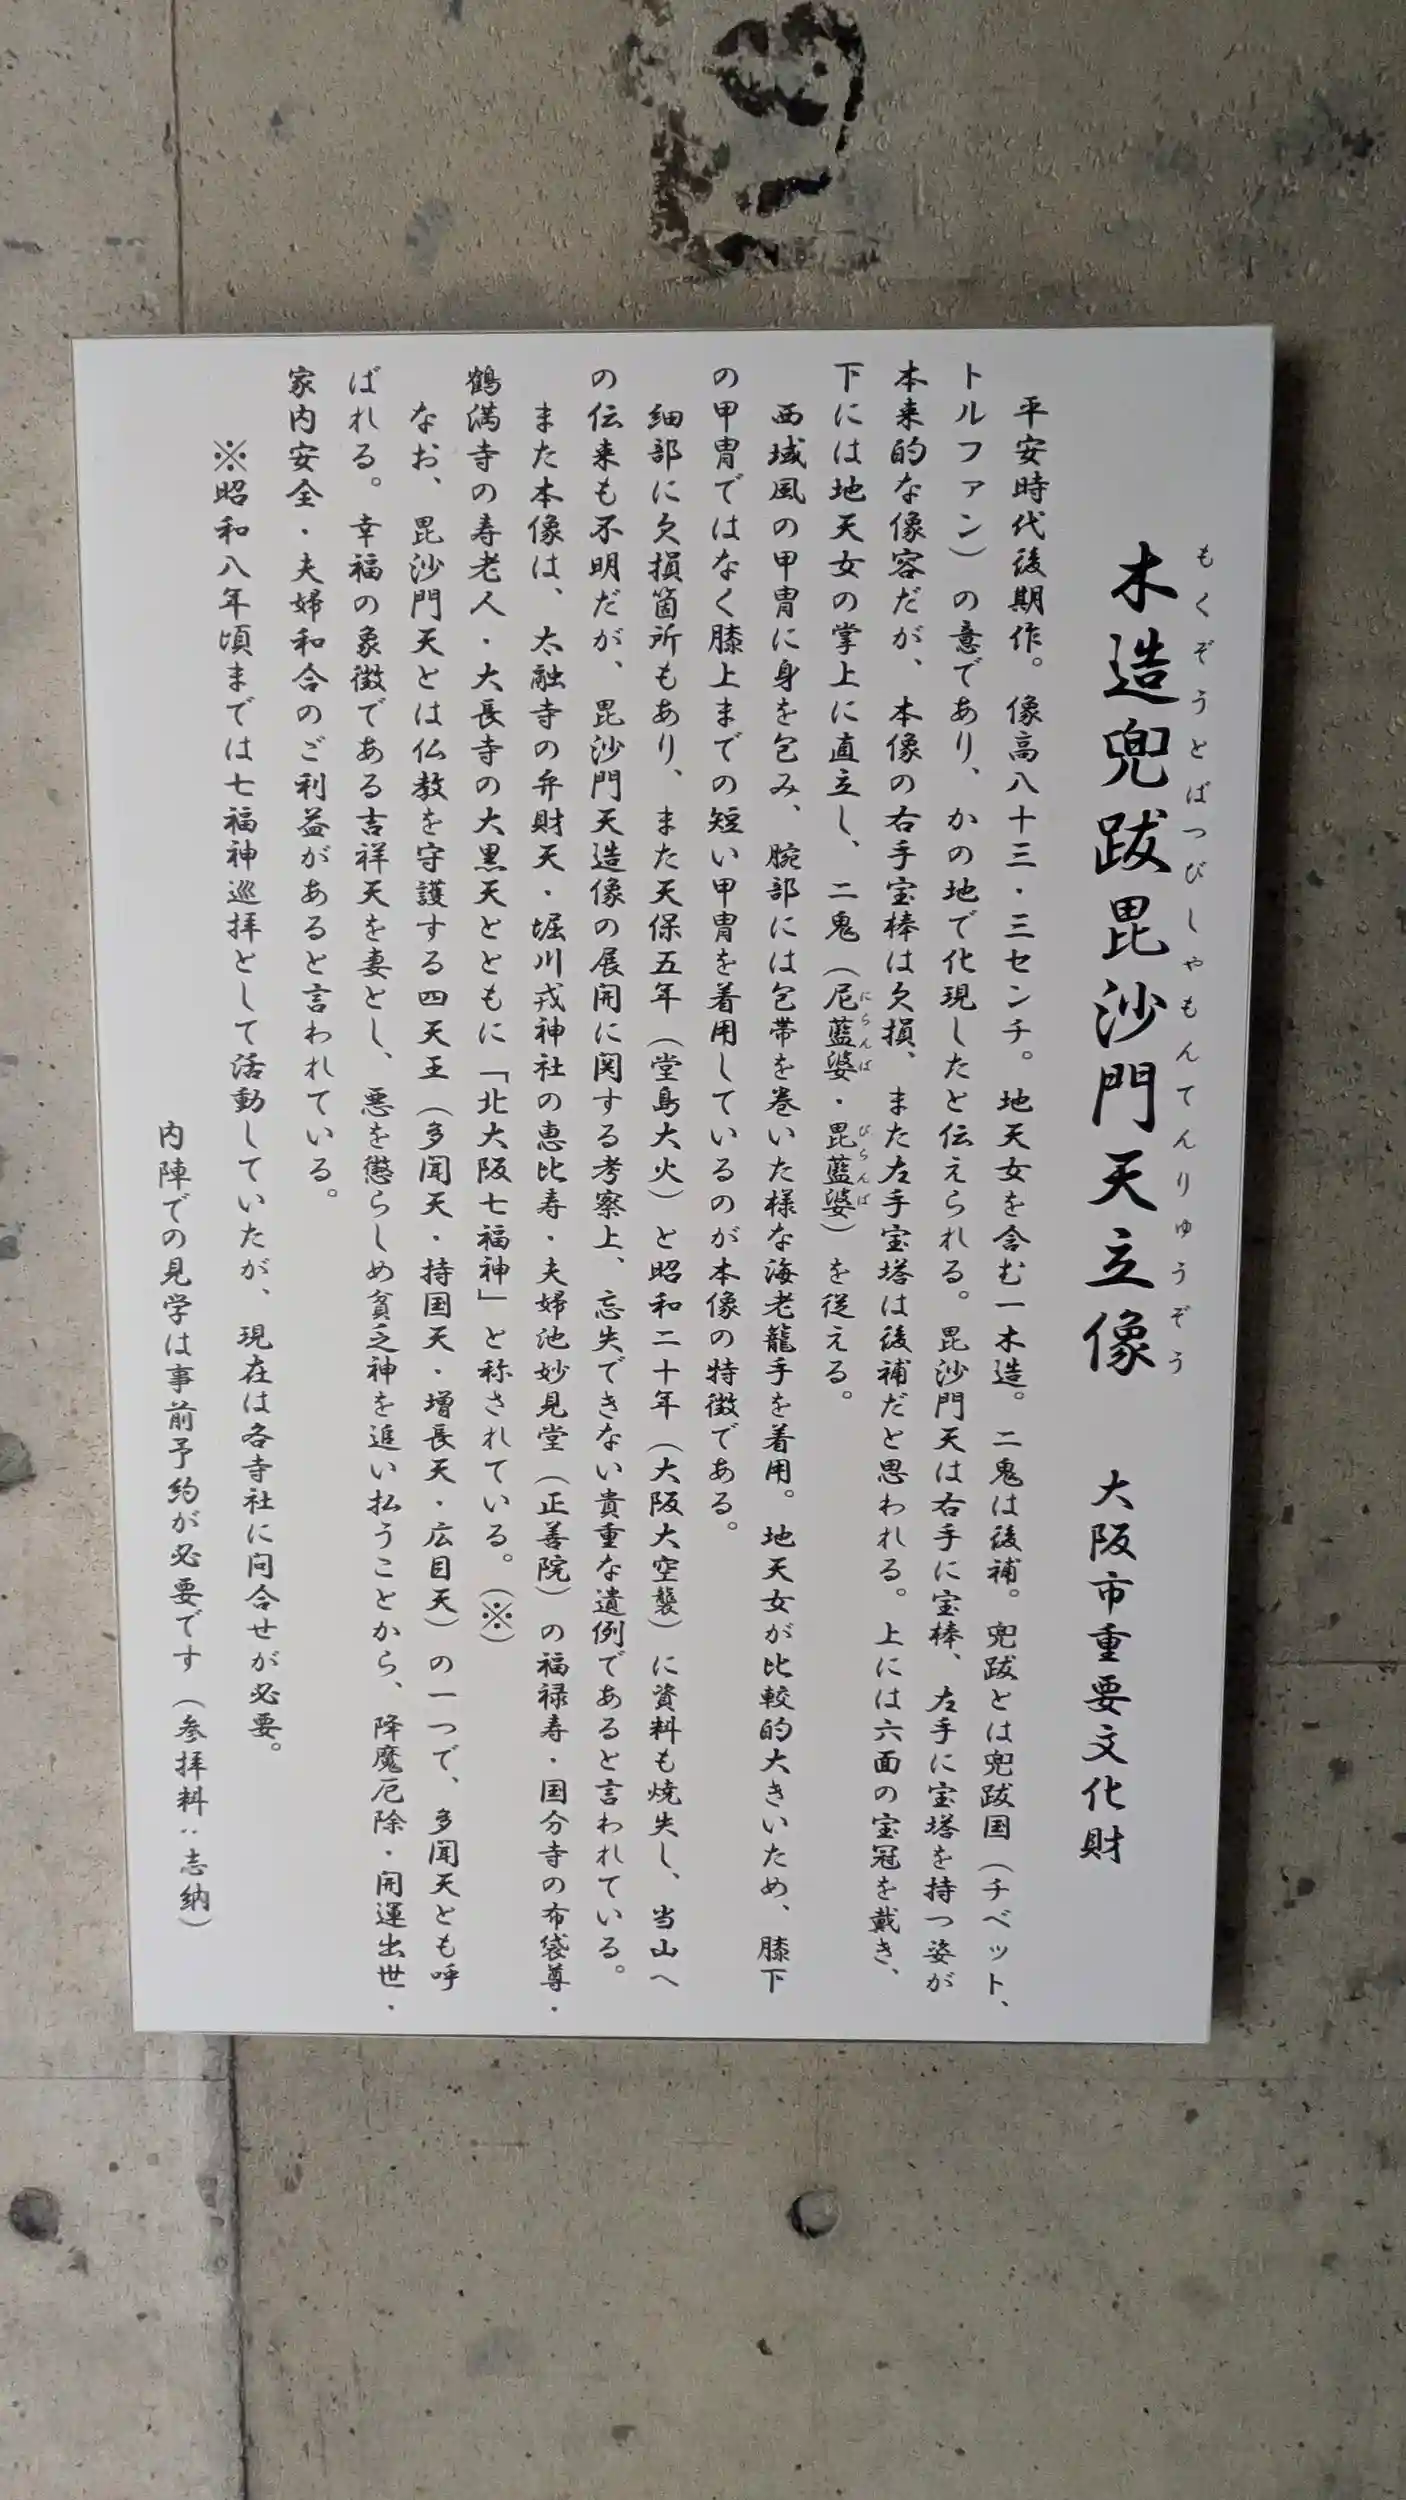 木造兜跋毘沙門天立像　大阪市重要文化財
もくぞうとばつびしゃもんてんりゅうぞう
平安時代後期作。像高八十三・三センチ。地天女を含む一木造。二鬼は後補。兜跋とは兜跋国（チベット、
トルファン）の意であり、かの地で化現したと伝えられる。毘沙門天は右手に宝棒、左手に宝塔を持つ姿が
本来的な像容だが、本像の右手宝棒は欠損、また左手宝塔は後補だと思われる。上には六面の宝冠を戴き、
下には地天女の掌上に直立し、二鬼（尼藍婆・毘藍婆）を従える。
にらんば　びらんば
西域風の甲冑に身を包み、腕部には包帯を巻いた様な海老籠手を着用。地天女が比較的大きいため、膝下
の甲冑ではなく膝上までの短い甲冑を着用しているのが本像の特徴である。
細部に欠損箇所もあり、また天保五年（堂島大火）と昭和二十年（大阪大空襲）に資料も焼失し、当山へ
の伝来も不明だが、毘沙門天造像の展開に関する考察上、忘失できない貴重な遺例であると言われている。
また本像は、太融寺の弁財天・堀川戎神社の恵比寿・夫婦池妙見堂（正善院）の福禄寿・国分寺の布袋尊・
鶴満寺の寿老人・大長寺の大黒天とともに「北大阪七福神」と称されている。（※）
なお、毘沙門天とは仏教を守護する四天王（多聞天・持国天・増長天・広目天）の一つで、多聞天とも呼
ばれる。幸福の象徴である吉祥天を妻とし、悪を懲らしめ貧乏神を追い払うことから、降魔厄除・開運出世・
家内安全・夫婦和合のご利益があると言われている。
※昭和八年頃までは七福神巡拝として活動していたが、現在は各寺社に問合せが必要。
内陣での見学は事前予約が必要です（参拝料：志納）